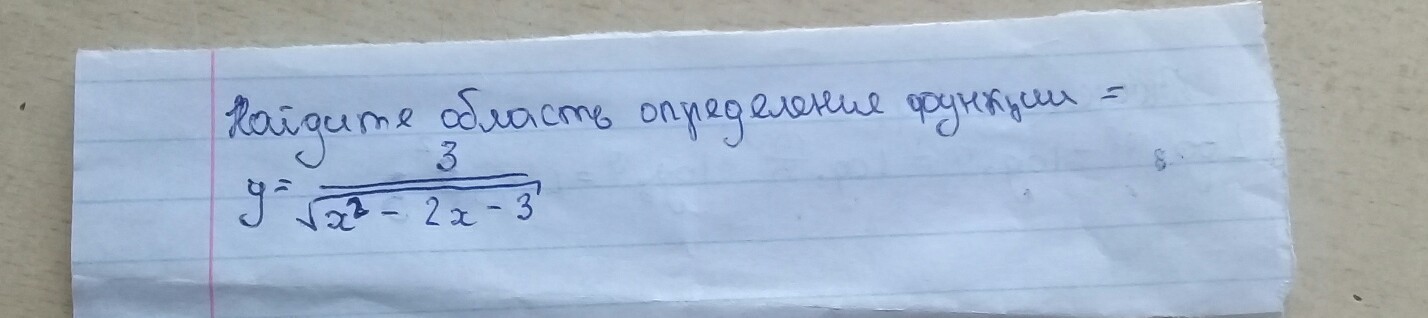 Найдите область определение функции =
y = 3/√x² - 2x - 3